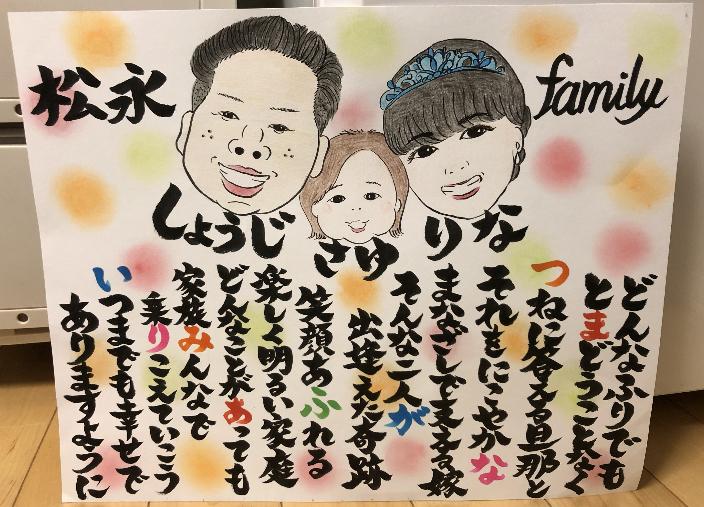 松永
family
しょうじ
さゆ
りな
どんなふりでも
とまどうことなく
つねに答える旦那と
それをにこやかな
まなざしで支える嫁
そんな二人が
出逢えた奇跡
笑顔あふれる
楽しく明るい家庭
どんなことがあっても
家族みんなで
乗りこえていこう
いつまでも幸せで
ありますように